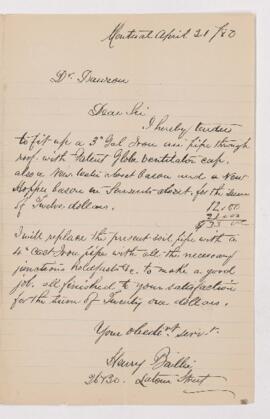 Montreal April 21/80
Dr. Dawson
Dear Sir
I hereby tender
to fit up a 3" Gal Iron air pipe through
roof with Patent Globe Ventilator cap.
also a New water closet bason and a New
Hopper bason in Servants closet. for the sum
of Twelve dollars. 12.00
21.00
$ 33.00
I will replace the present soil pipe with a
4" Cast Iron pipe with all the necessary
junctions holdfasts &c. to make a good
job. all finished to your satisfaction
for the sum of Twenty one dollars.
Your obedt. servt.
Henry
Street